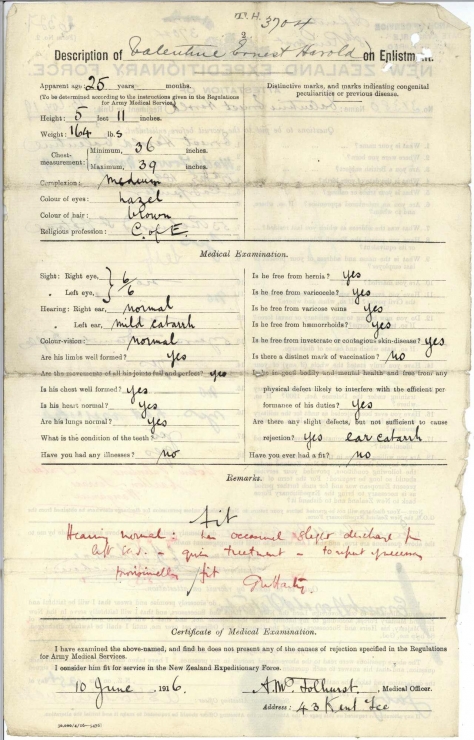 T.H. 3704
2
Description of Valentine Ernest Harold on Enlistment.
Apparent age 25 years months.
(To be determined according to the instructions given in the Regulations for Army Medical Service.)
Height: 5 feet 11 inches.
Weight: 164 lbs
Chest-measurement: { Minimum, 36 inches.
Maximum, 39 inches.
Complexion: medium
Colour of eyes: hazel
Colour of hair: brown
Religious profession: C. of E.
Distinctive marks, and marks indicating congenital
peculiarities or previous disease.
Medical Examination.
Sight: Right eye, } 6/6
" Left eye,
Hearing: Right ear, normal
" Left ear, mild catarrh
Colour-vision: normal
Are his limbs well formed? yes
Are the movements of all his joints full and perfect? yes
Is his chest well formed? yes
Is his heart normal? yes
Are his lungs normal? yes
What is the condition of the teeth?
Have you had any illnesses? no
Is he free from hernia? yes
Is he free from varicocele? yes
Is he free from varicose veins yes
Is he free from hæmorrhoids? yes
Is he free from inveterate or contagious skin-disease? yes
Is there a distinct mark of vaccination? no
in good bodily and mental health and free from any
physical defect likely to interfere with the efficient per-
formance of his duties? yes
Are there any slight defects, but not sufficient to cause
rejection? yes ear catarrh
Have you ever had a fit? no
Remarks.
fit
Hearing normal: has occasional slight discharge fr
left ear. - given treatment - to report if necessary
provisionally fit
Certificate of Medical Examination.
I have examined the above-named, and find he does not present any of the causes of rejection specified in the Regulations
for Army Medical Services.
I consider him fit for service in the New Zealand Expeditionary Force.
10 June, 1916. A. McTolhurst, Medical Officer.
Address: 43 Kent Tce